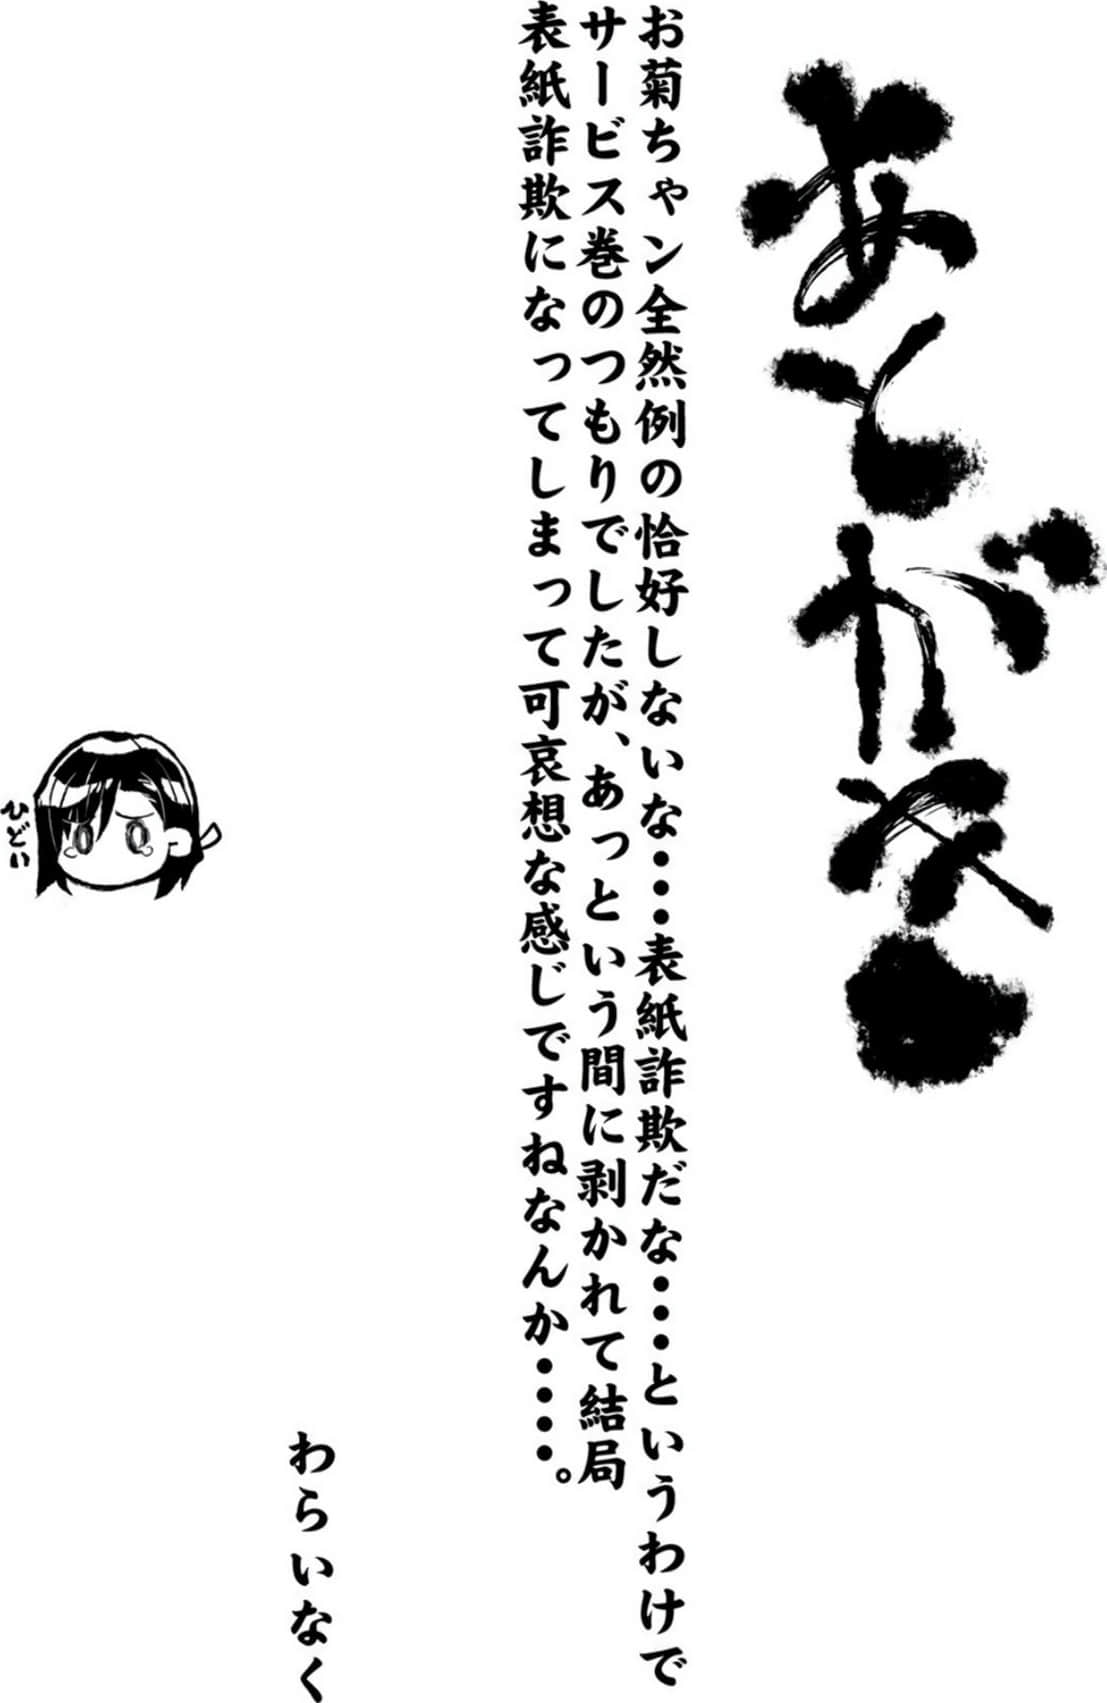 あとがき
お菊ちゃン全然例の恰好しないな・・・表紙詐欺だな・・・というわけで
サービス巻のつもりでしたが、あっという間に剥かれて結局
表紙詐欺になってしまって可哀想な感じですねなんか・・・・。
わらいなく
ひどい